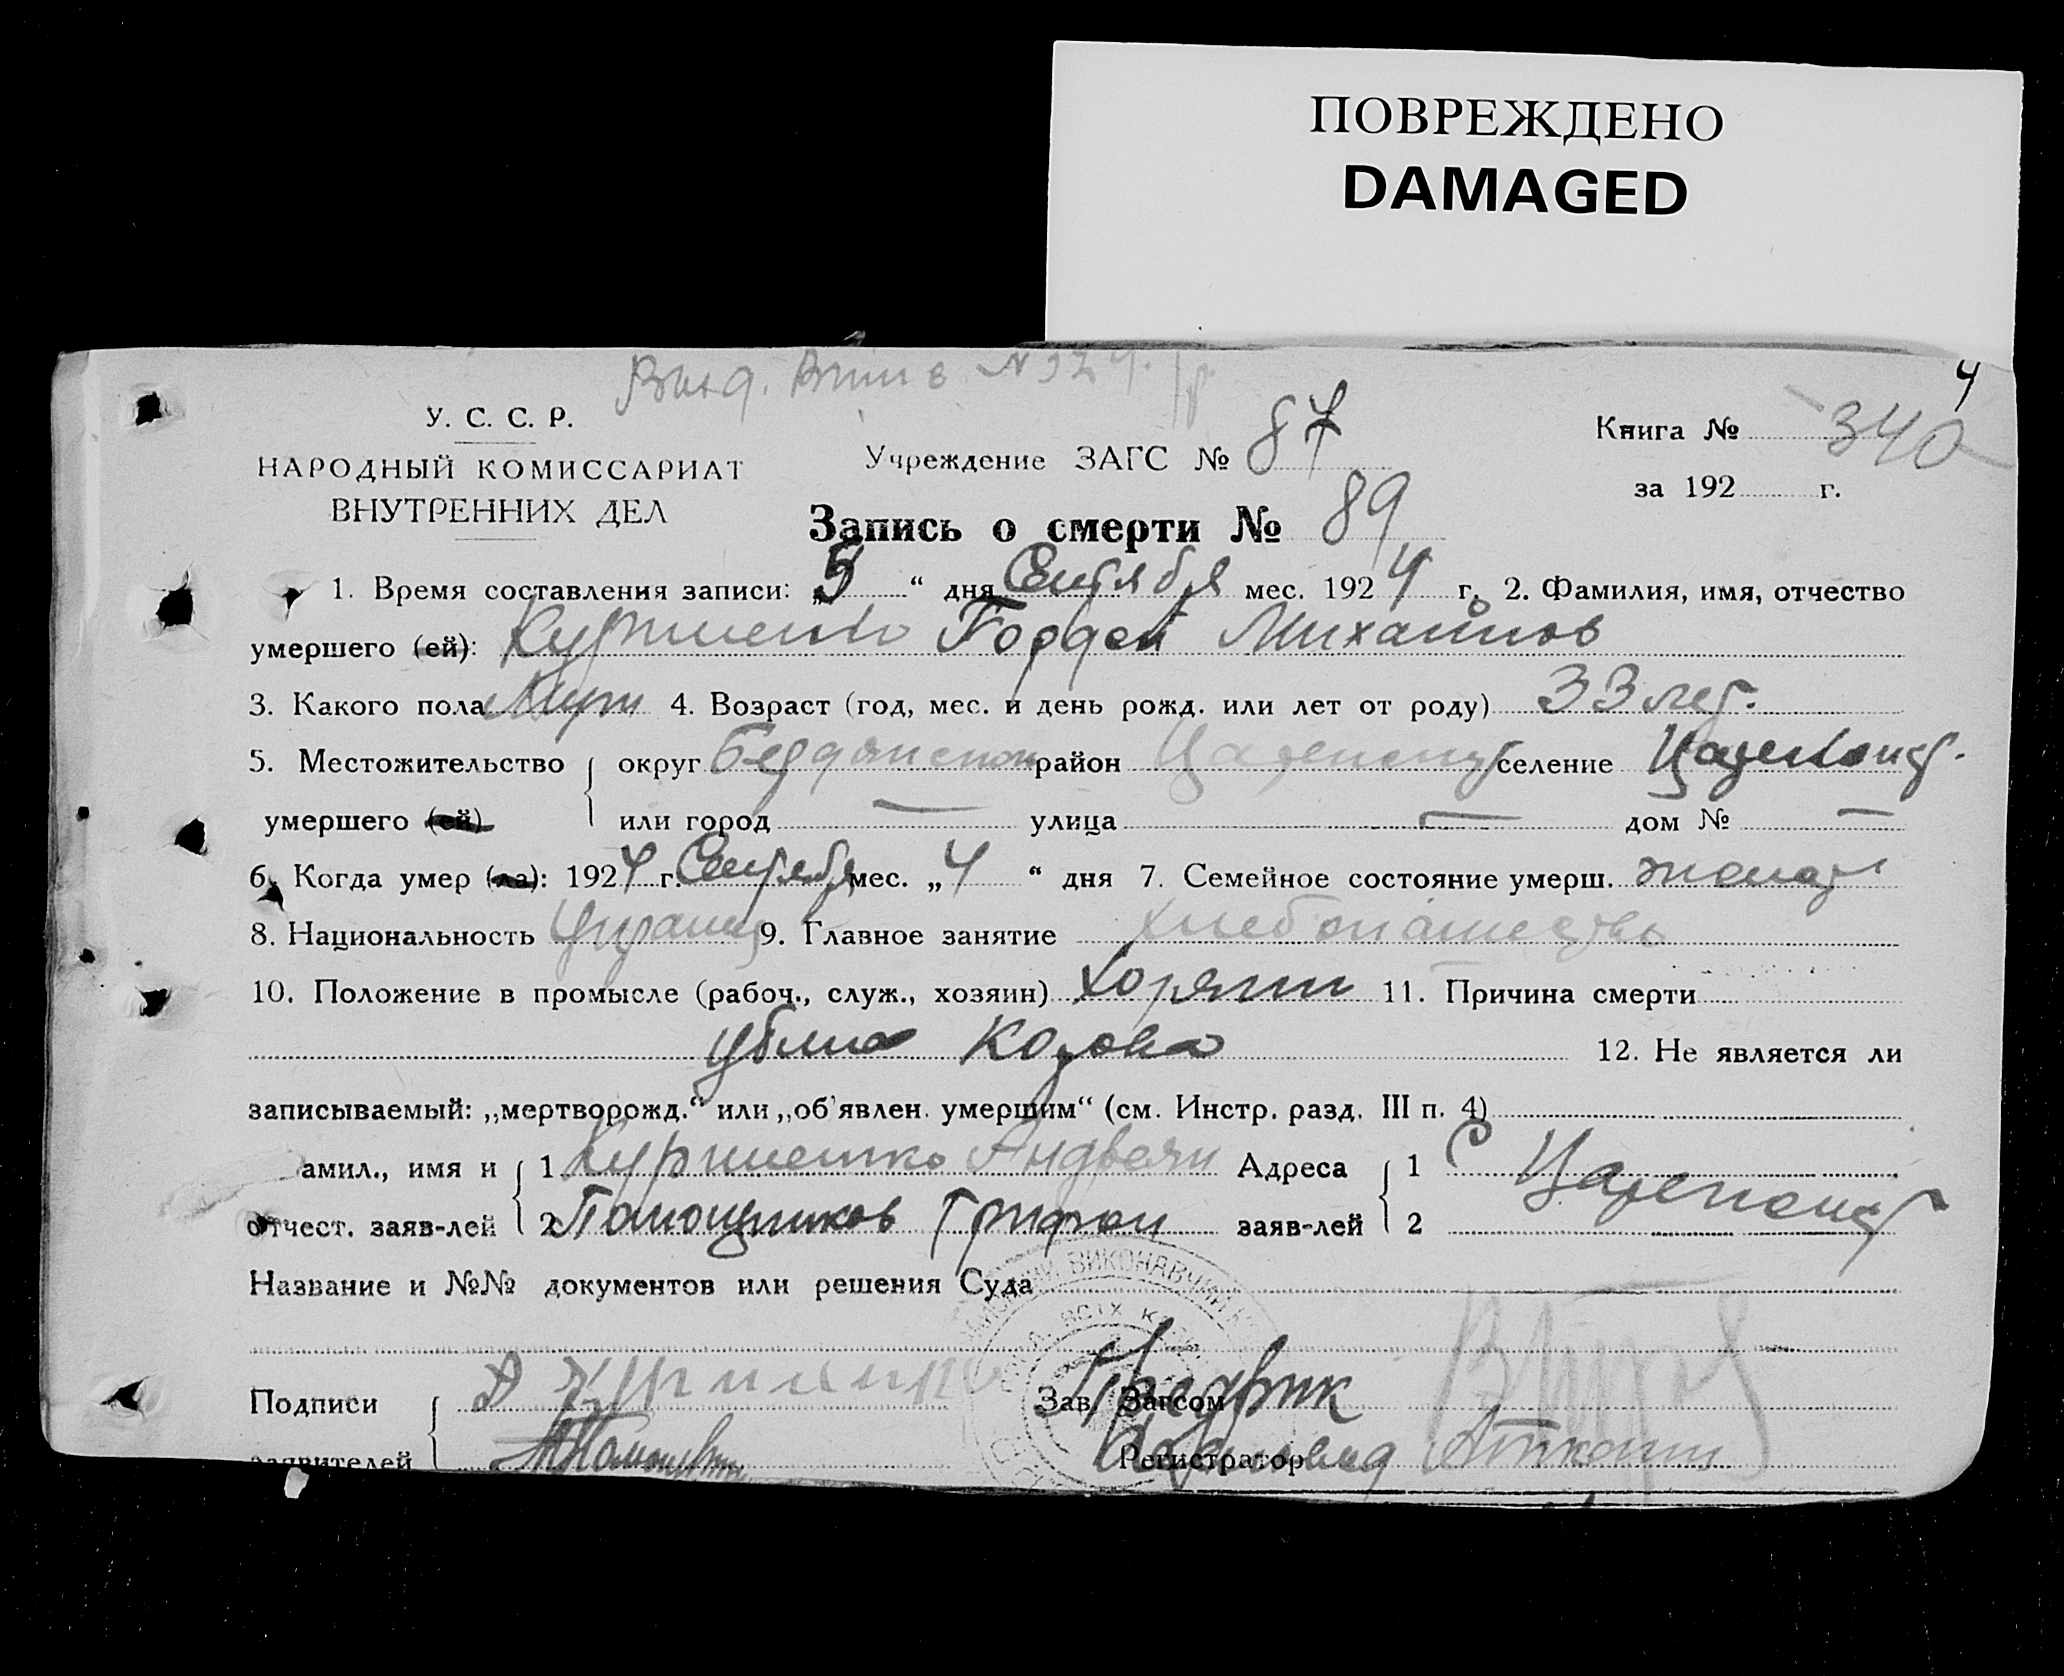 ПОВРЕЖДЕНО
DAMAGED
4
У. С. С. Р.
НАРОДНЫЙ КОМИССАРИАТ
ВНУТРЕННИХ ДЕЛ
Учреждение ЗАГС № 87
Книга № 340
за 192 г.
Запись о смерти № 89
1. Время составления записи: „5“ дня Сентября мес. 1924 г. 2. Фамилия, имя, отчество
умершего (ей): Гордей Михайлов
3. Какого пола Муж 4. Возраст (год, мес. и день рожд. или лет от роду) 33 лет.
5. Местожительство округ Бердянской район селение
умершего (ей) или город — улица — дом № —
6. Когда умер (ла): 1924 г. Сентябр мес. „4“ дня 7. Семейное состояние умерш. женат
8. Национальность 9. Главное занятие хлебопашество
10. Положение в промысле (рабоч., служ., хозяин) 11. Причина смерти
убила корова 12. Не является ли
записываемый: „мертворожд.“ или „об'явлен. умершим“ (см. Инстр. разд. III п. 4)
амил., имя и 1 Адреса 1 С
отчест. заяв-лей 2 заяв-лей 2
Название и №№ документов или решения Суда
Подписи Зав. Загсом
заявителей Регистратор